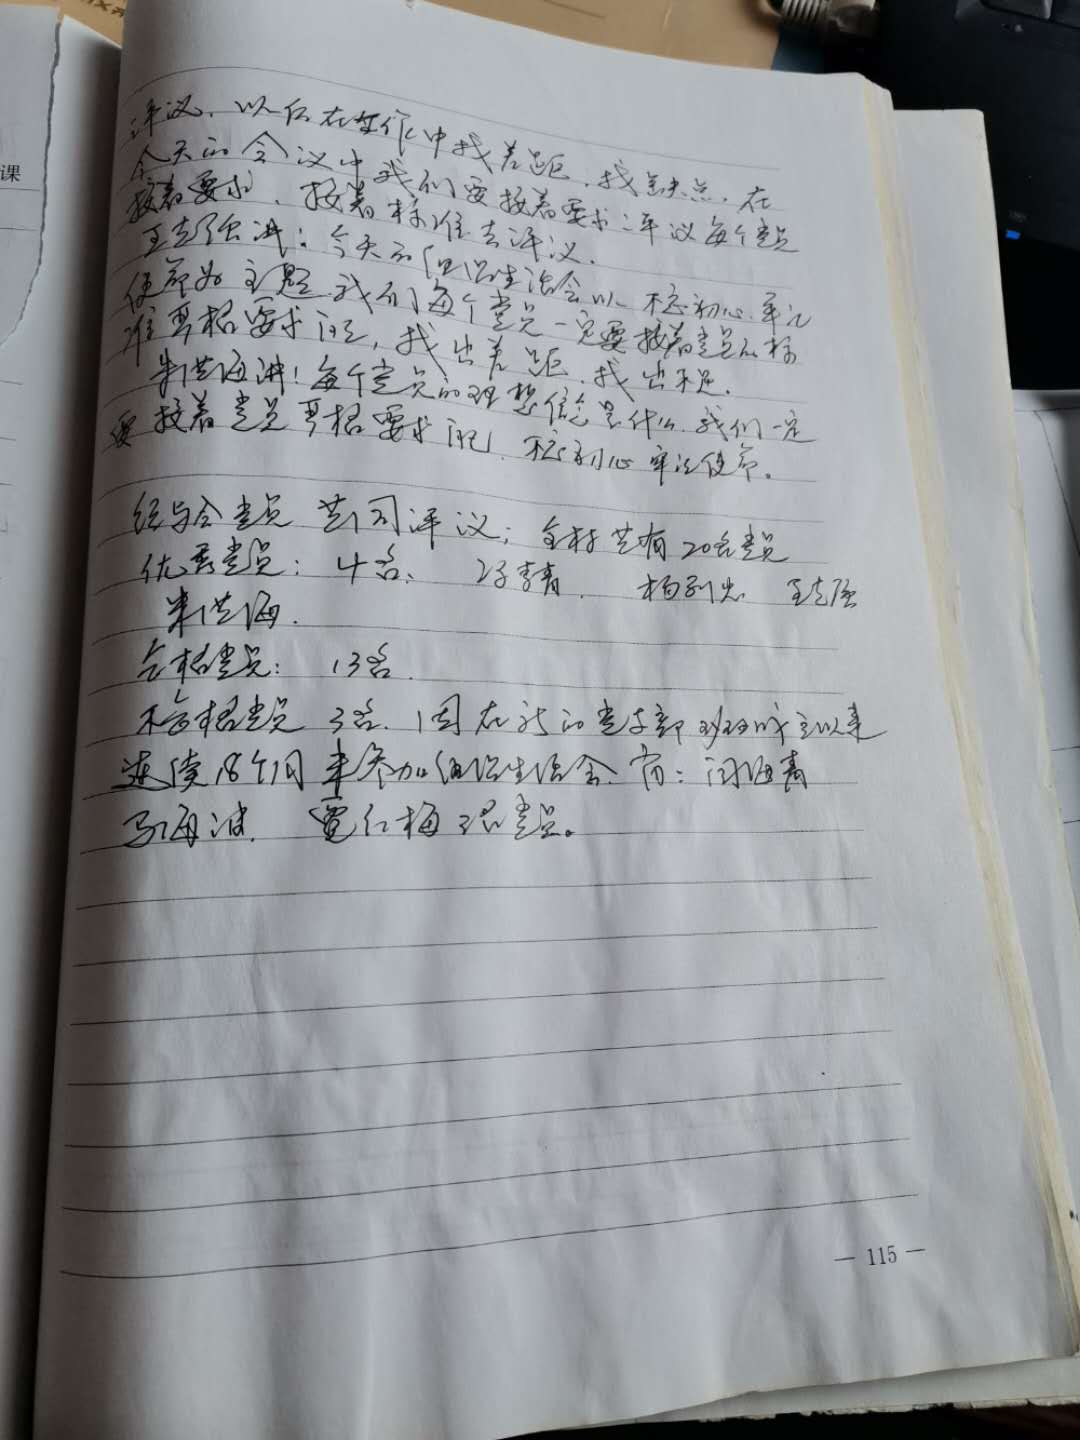 课
评议，以后在工作中找差距，找缺点，在
今天的会议中我们要按着要求评议每个党员
按着要求，按着标准去评议。
王克强讲：今天的组织生活会以不忘初心牢记
使命为主题我们每个党员一定要按着党员的标
准严格要求自己，找出差距，找出不足。
朱洪海讲！每个党员的理想信念是什么，我们一定
要按着党员严格要求自己，不忘初心牢记使命。
经与会党员共同评议；全村共有20名党员
优秀党员：4名： 杨列忠 王克强
朱洪海．
合格党员：13名．
不合格党员3名．因在新的党支部班班成立以来
连续18个月未参加组织生活会．有：闫海青
马海波． 贾红梅 党员。
— 115 —